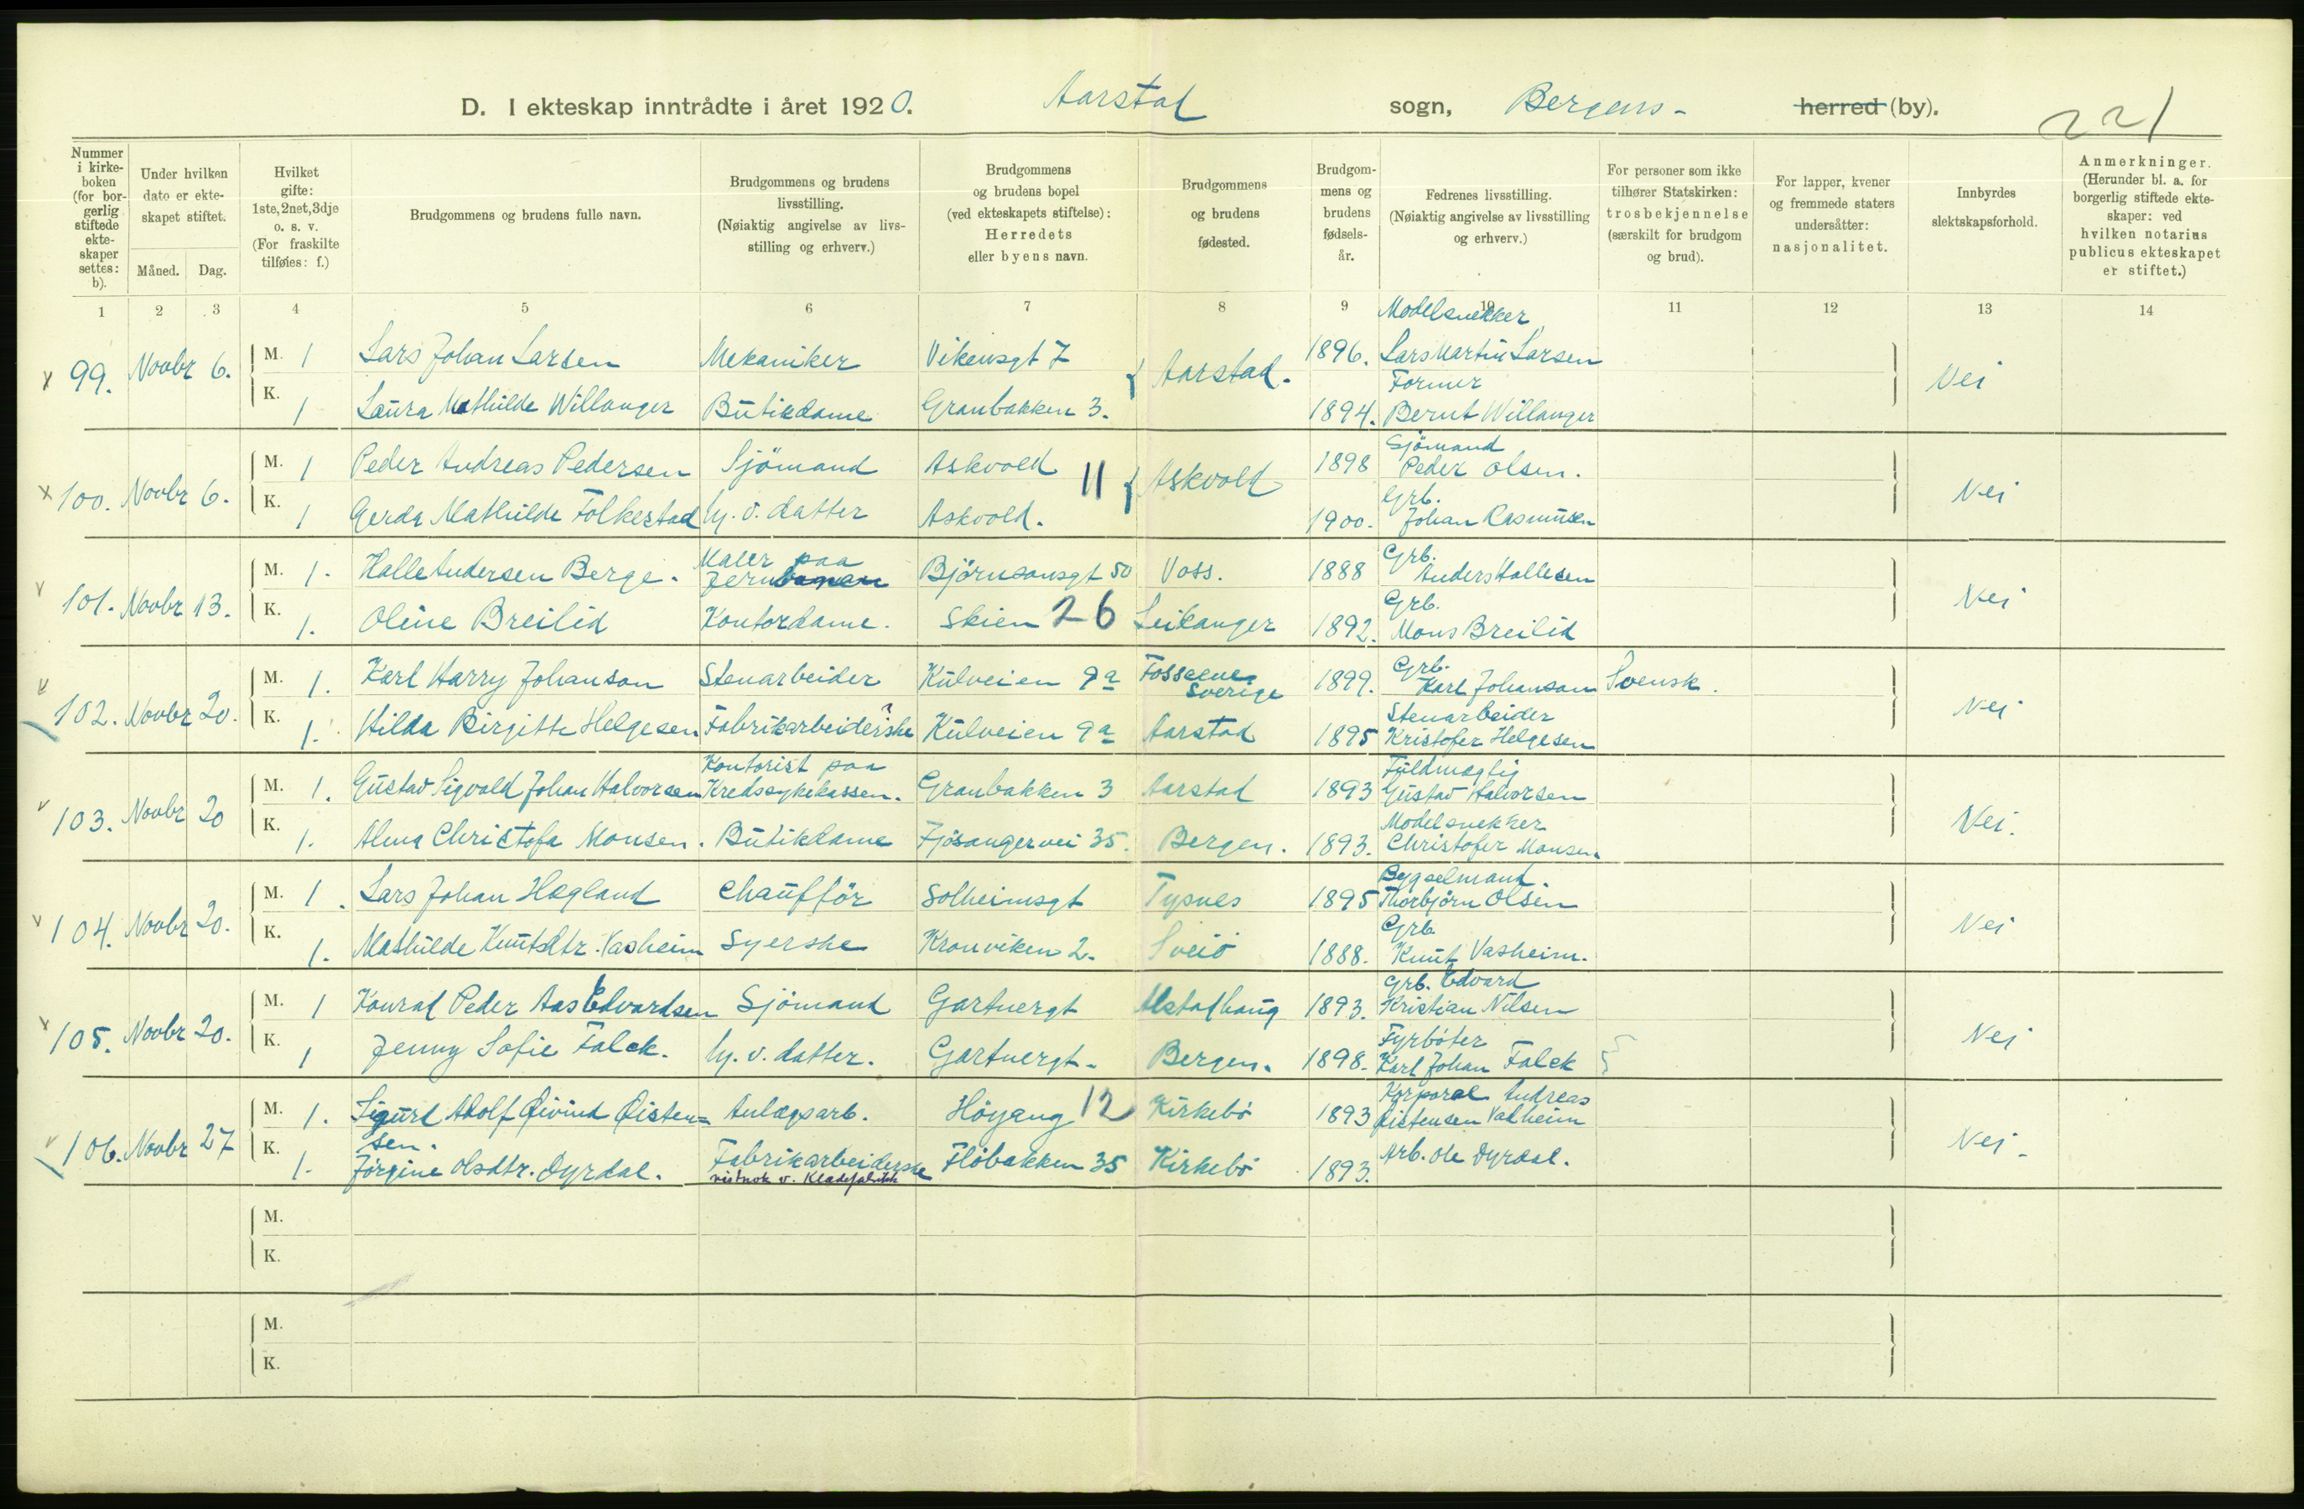 D. I ekteskap inntrådte i året 1920. Aarstad sogn, Bergens - herred (by). 221
Nummer i kirkeboken (for borgerlig stiftede ekteskaper settes: b).
Under hvilken dato er ekteskapet stiftet.
Måned. Dag.
Hvilket gifte: 1ste, 2net, 3dje o. s. v. (For fraskilte tilføies: f.)
Brudgommens og brudens fulle navn.
Brudgommens og brudens livsstilling. (Nøiaktig angivelse av livsstilling og erhverv.)
Brudgommens og brudens bopel (ved ekteskapets stiftelse): Herredets eller byens navn.
Brudgommens og brudens fødested.
Brudgommens og brudens fødselsår.
Fedrenes livsstilling. (Nøiaktig angivelse av livsstilling og erhverv.)
For personer som ikke tilhører Statskirken: trosbekjennelse (særskilt for brudgom og brud).
For lapper, kvener og fremmede staters undersåtter: nasjonalitet.
Innbyrdes slektskapsforhold.
Anmerkninger. (Herunder bl. a. for borgerlig stiftede ekteskaper: ved hvilken notarius publicus ekteskapet er stiftet.)
1 2 3 4 5 6 7 8 9 10 11 12 13 14
Modelsnekker
x 99. Novbr 6. M. 1 Lars Johan Larsen Mekaniker Vikensgt 7 Aarstad. 1896. Lars Martin Larsen Nei
Former
K. 1 Laura Mathilde Willanger Butikdame Granbakken 3. 1894. Bernt Willanger
Sjömand
x 100. Novbr 6. M. 1 Peder Andreas Pedersen Sjömand Askvold 11 Askvold 1898 Peder Olsen. Nei
Grb.
K. 1 Gerda Mathilde Folkestad hj. v. datter Askvold. 1900. Johan Rasmusen
Maler paa Grb.
v 101. Novbr 13. M. 1. Halle Andersen Berge. Jernbanen Björnsonsgt 50 Voss. 1888 Anders Hallesen Nei
Grb.
K. 1. Oline Breilid Kontordame. Skien 26 Leikanger 1892. Mons Breilid
Grb.
v 102. Novbr 20. M. 1. Karl Harry Johanson Stenarbeider Kulveien 9a Sverige 1899. Karl Johanson Svensk. Nei
Stenarbeider
K. 1. Hilda Birgitte Helgesen Fabrikarbeiderske Kulveien 9a Aarstad 1895 Kristofer Helgesen
Kontorist paa Fuldmægtig
v 103. Novbr 20 M. 1. Gustav Sigvald Johan Halvorsen Kredssykekassen. Granbakken 3 Aarstad 1893 Gustav Halvorsen Nei.
Modelsnekker
K. 1. Alma Christofa Monsen. Butikdame Fjösangervei 35. Bergen. 1893. Christofer Monsen.
Bygselmand.
v 104. Novbr 20. M. 1. Lars Johan Hegland Chaufför Solheimsgt Tysnes 1895 Thorbjörn Olsen Nei
Grb.
K. 1. Mathilde Knutsdtr. Vasheim Syerske Kronviken 2. Sveiö 1888. Knut Vasheim.
Grb. Edvard
x 105. Novbr 20. M. 1 Konrad Peder Aas Edvardsen Sjömand Gartnergt Alstadhaug 1893. Kristian Nilsen Nei
Fyrböter
K. 1 Jenny Sofie Falck. hj. v. datter. Gartnergt. Bergen. 1898. Karl Johan Falck
Korporal Andreas
v 106. Novbr 27 M. 1. Sigurd Adolf Øivind Øisten= Anlægsarb. Höyang 12 Kirkebö 1893 Øistensen Vadheim Nei.
sen.
K. 1. Jörgine Olsdtr. Dyrdal. Fabrikarbeiderske Flöbakken 35 Kirkebö 1893. Arb. Ole Dyrdal.
vistnok v. Klædefabrikk
M.
K.
M.
K.